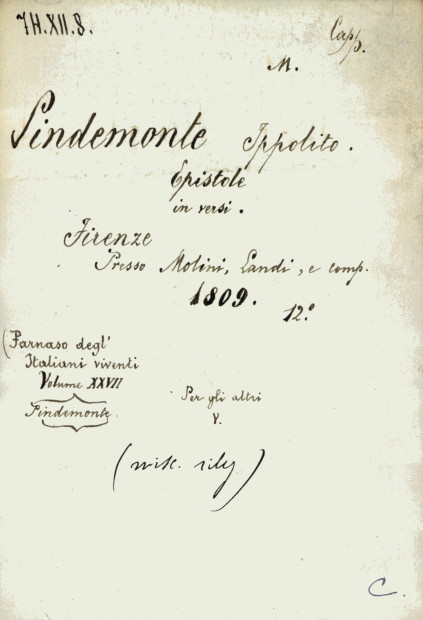 7H.XII.8.
Capp.
M.
Pindemonte Ippolito.
Epistole
in versi.
Firenze
Presso Molini, Landi, e comp.
1809.
12.º
(Parnaso degl'
Italiani viventi
Volume XXVII
Pindemonte
Per gli altri
V.
C.